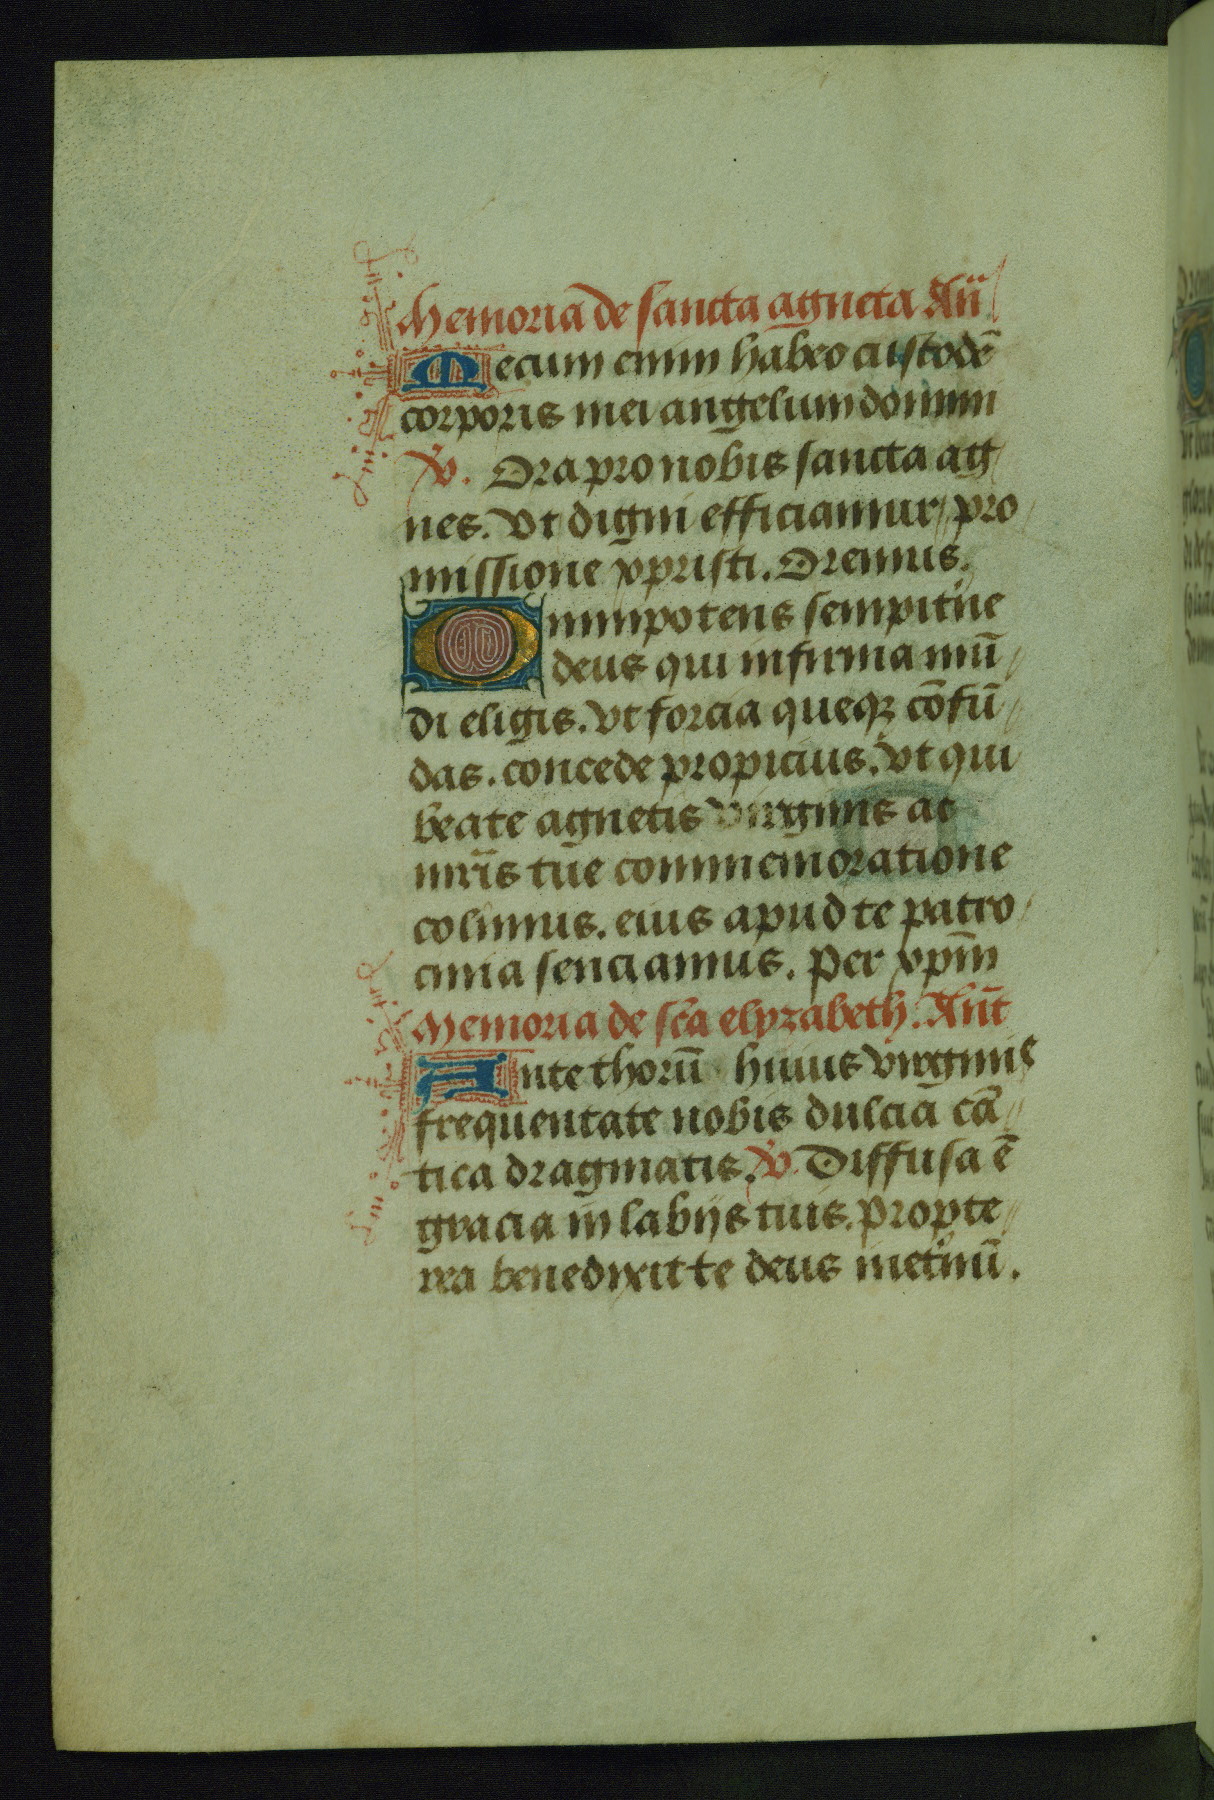 Memoria de sancta agneta Añ
Mecum enim habeo custodē
corporis mei angelum domini
V. Ora pro nobis sancta ag
nes. Vt digni efficiamur pro
missione xpristi. Oremus.
Omnipotens sempit'ne
deus qui infirma mū
di eligis. vt forcia queqꝫ cōfū
das. concede propicius. vt qui
beate agnetis virginis ac
mr̄is tue commemoratione
colimus. eius apud te patro
cinia senciamus. Per xp̄m
Memoria de sc̄a elyzabeth. Añt
Ante thorū huius virginis
frequentate nobis dulcia cā
tica dragmatis. V Diffusa ē
gracia in labijs tuis. Propte
rea benedixit te deus inet'nū.